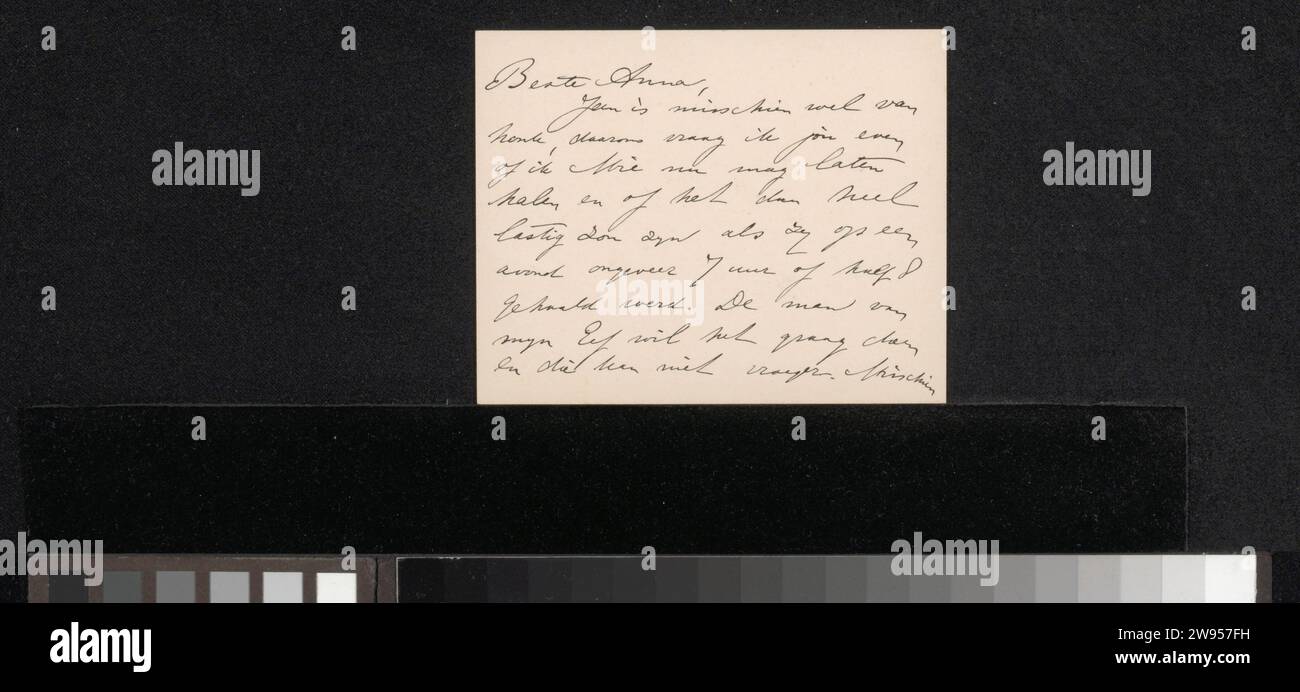 Beste Anna,
Jan is misschien wel van
honk, daarom vraag ik jou even
of ik Mie nu mag laten
halen en of het dan heel
lastig zou zyn als zy op een
avond ongeveer 7 uur of half 8
gehaald werd. De man van
myn Eef wil het graag doen
en die kan niet vroeger. Misschien
alamy
Image ID: 2W957FH
www.alamy.com